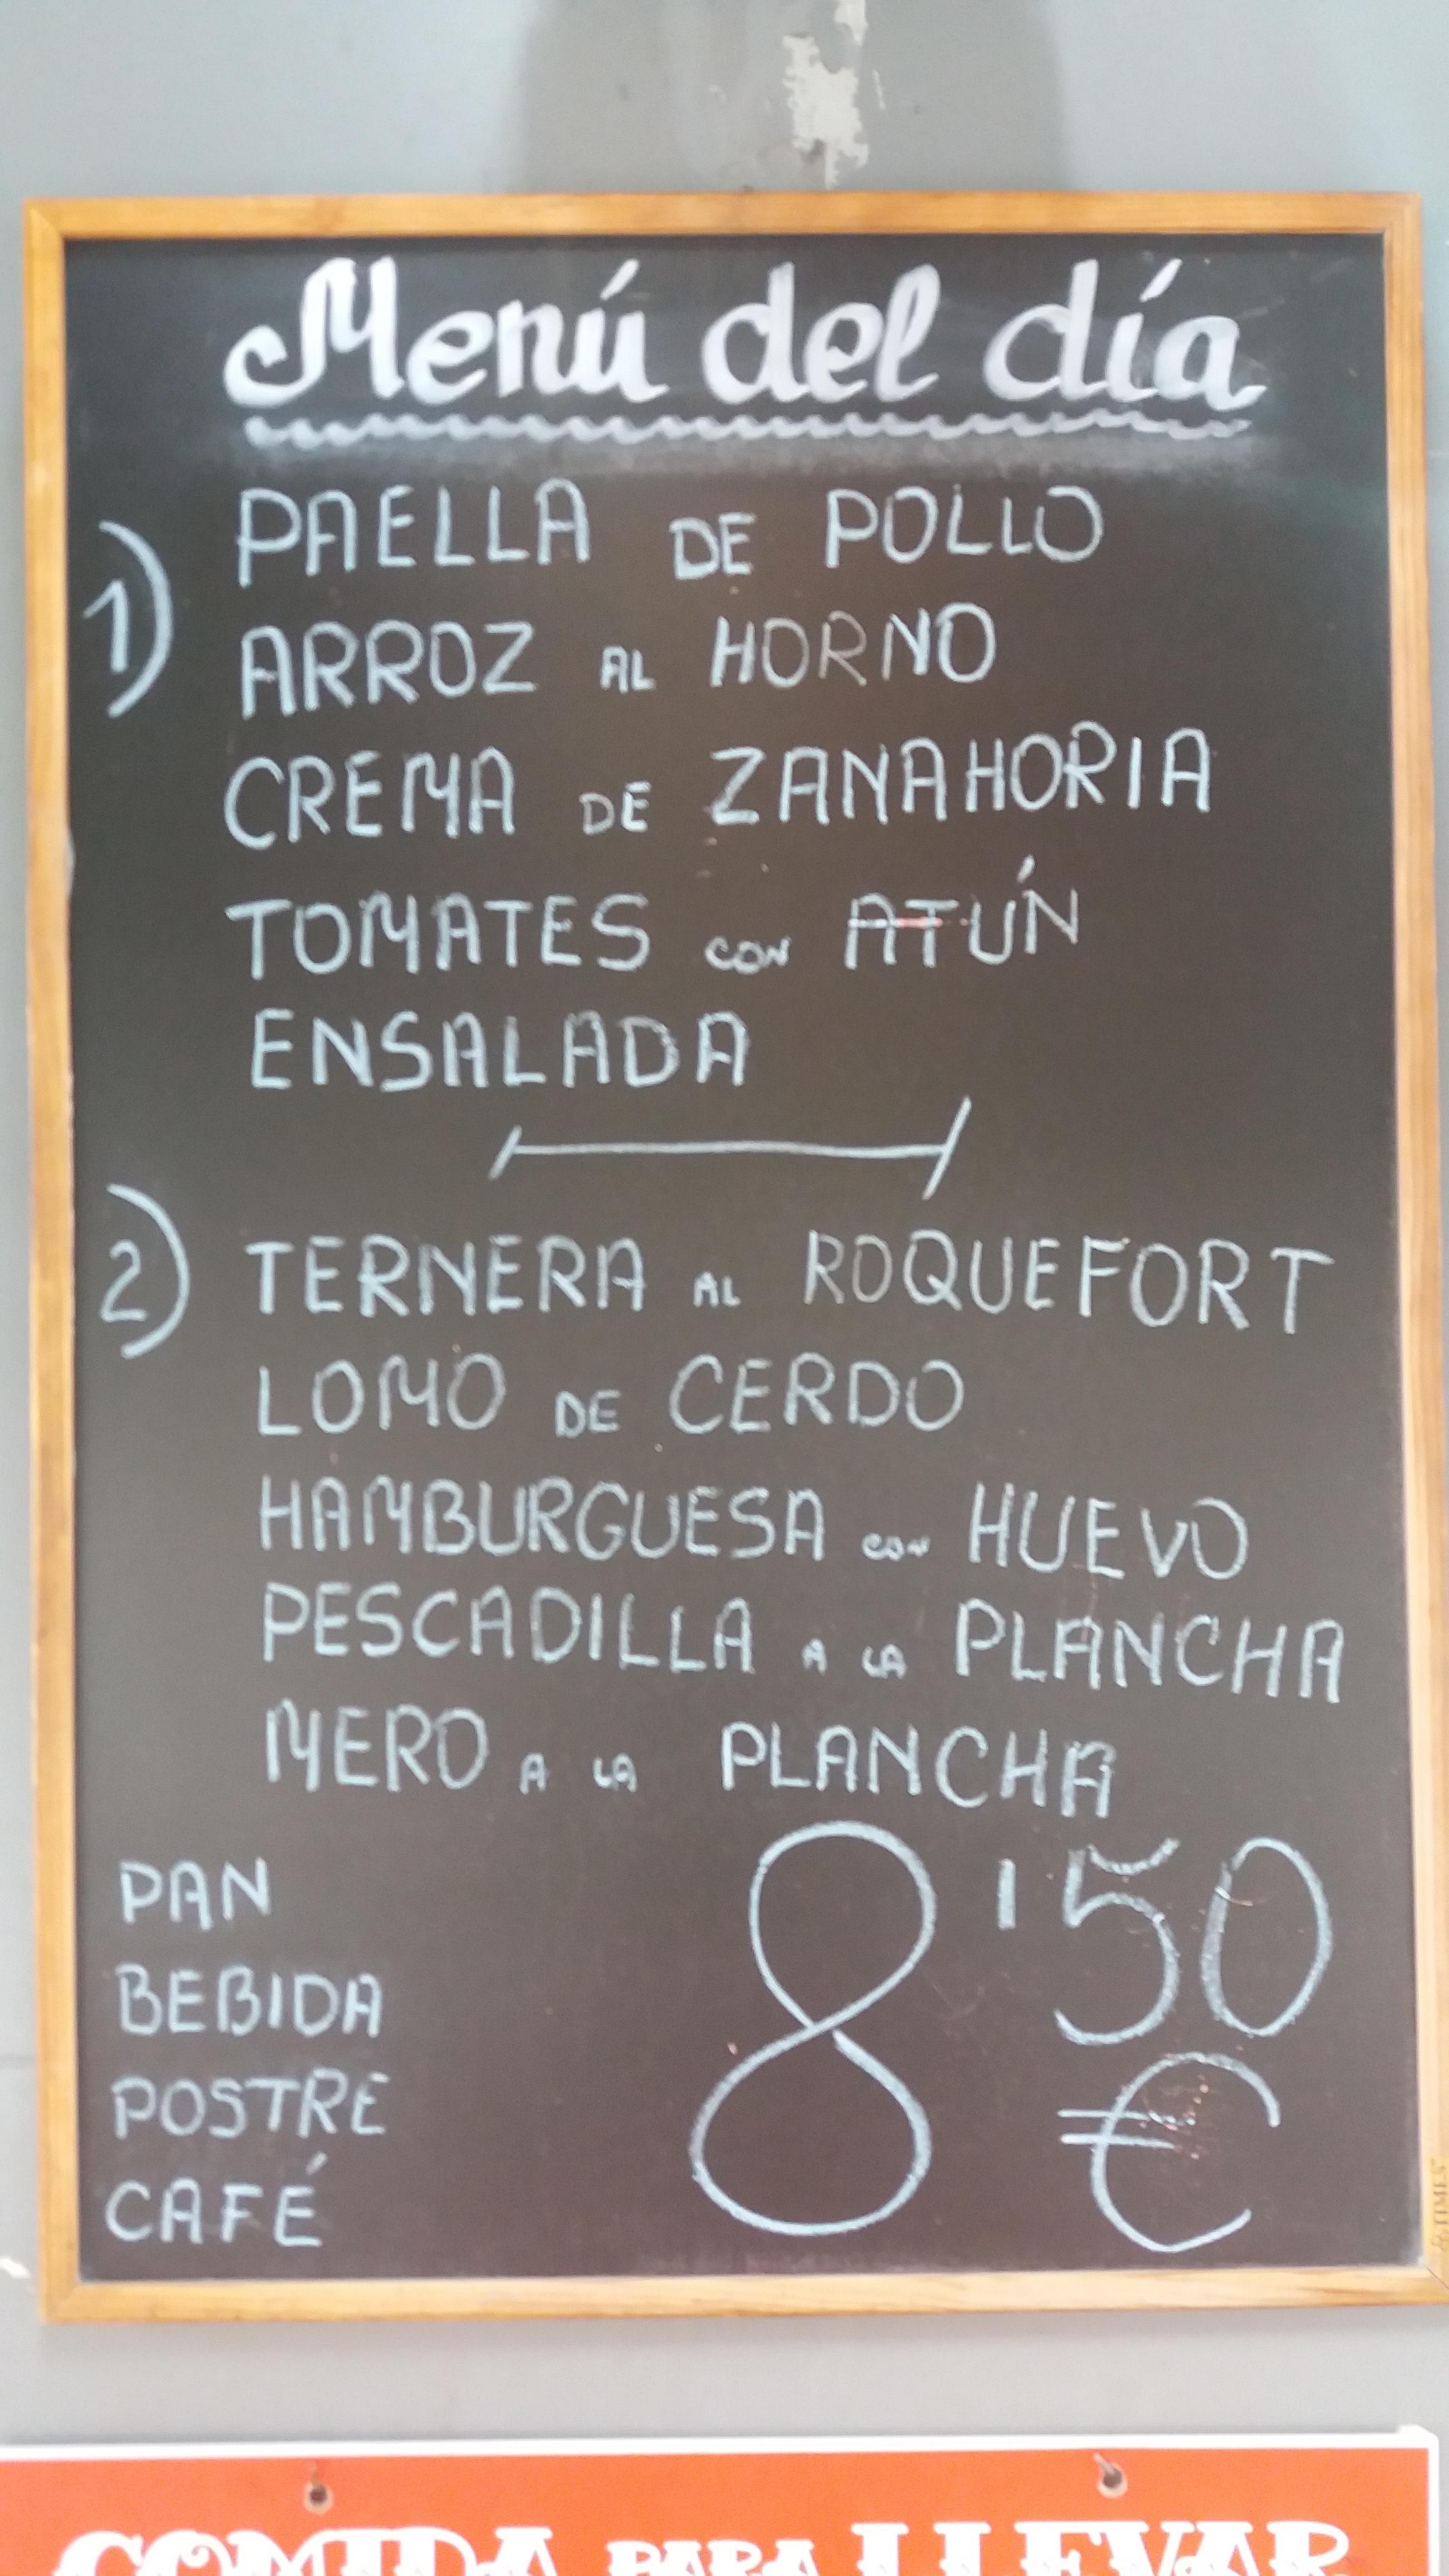 Menú del día
1) PAELLA DE POLLO
ARROZ AL HORNO
CREMA DE ZANAHORIA
TOMATES CON ATÚN
ENSALADA
2) TERNERA AL ROQUEFORT
LOMO DE CERDO
HAMBURGUESA CON HUEVO
PESCADILLA A LA PLANCHA
MERO A LA PLANCHA
PAN
BEBIDA
POSTRE
CAFÉ
8'50
€
COMIDA PARA LLEVAR